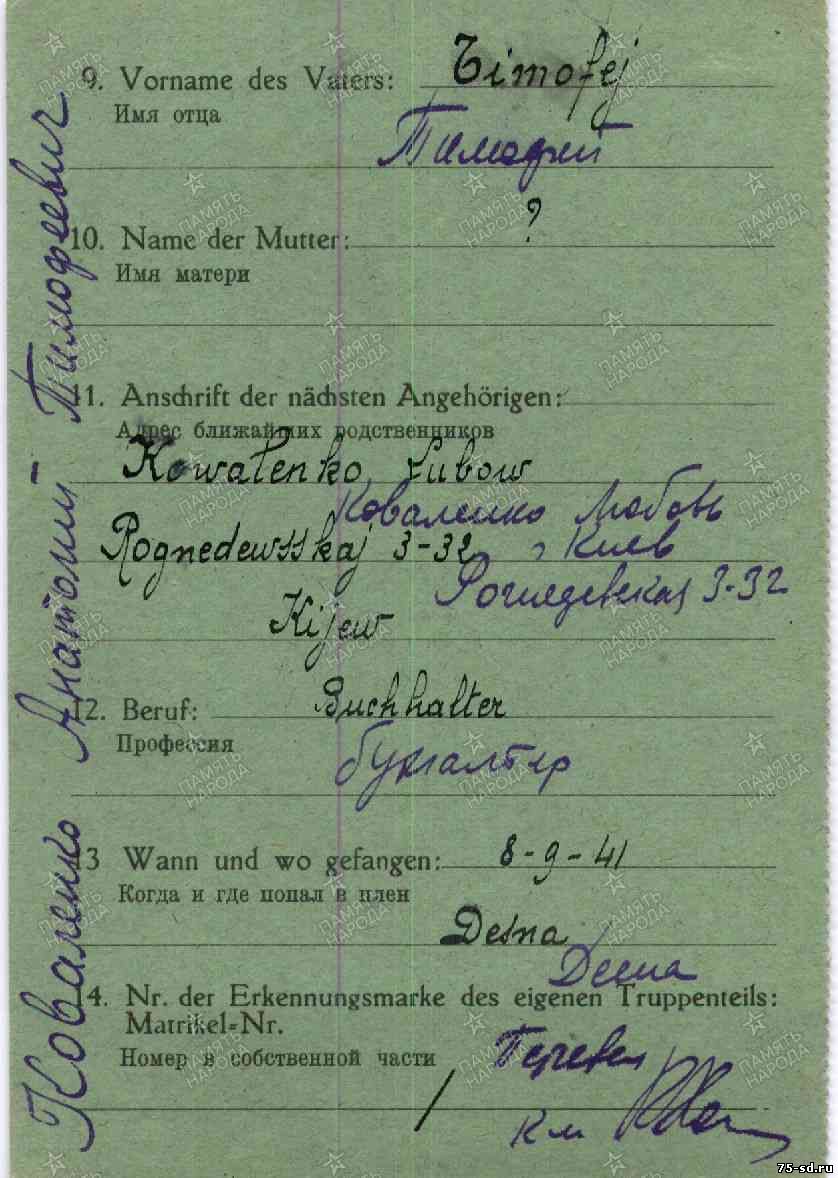 9. Vorname des Vaters: Timofej
Имя отца
Тимофей
10. Name der Mutter: ?
Имя матери
11. Anschrift der nächsten Angehörigen:
Адрес ближайших родственников
Kowalenko Lubow
Коваленко Любовь
Rognedewsskaj 3-32
г Киев
Рогнедевская 3-32
Kijew
12. Beruf: Buchhalter
Профессия
бухгалтер
13 Wann und wo gefangen: 8-9-41
Когда и где попал в плен
Desna
Десна
14. Nr. der Erkennungsmarke des eigenen Truppenteils:
Matrikel=Nr.
Номер в собственной части
/
Перевел
Коваленко Анатолий Тимофеевич
ПАМЯТЬ
НАРОДА
75-sd.ru